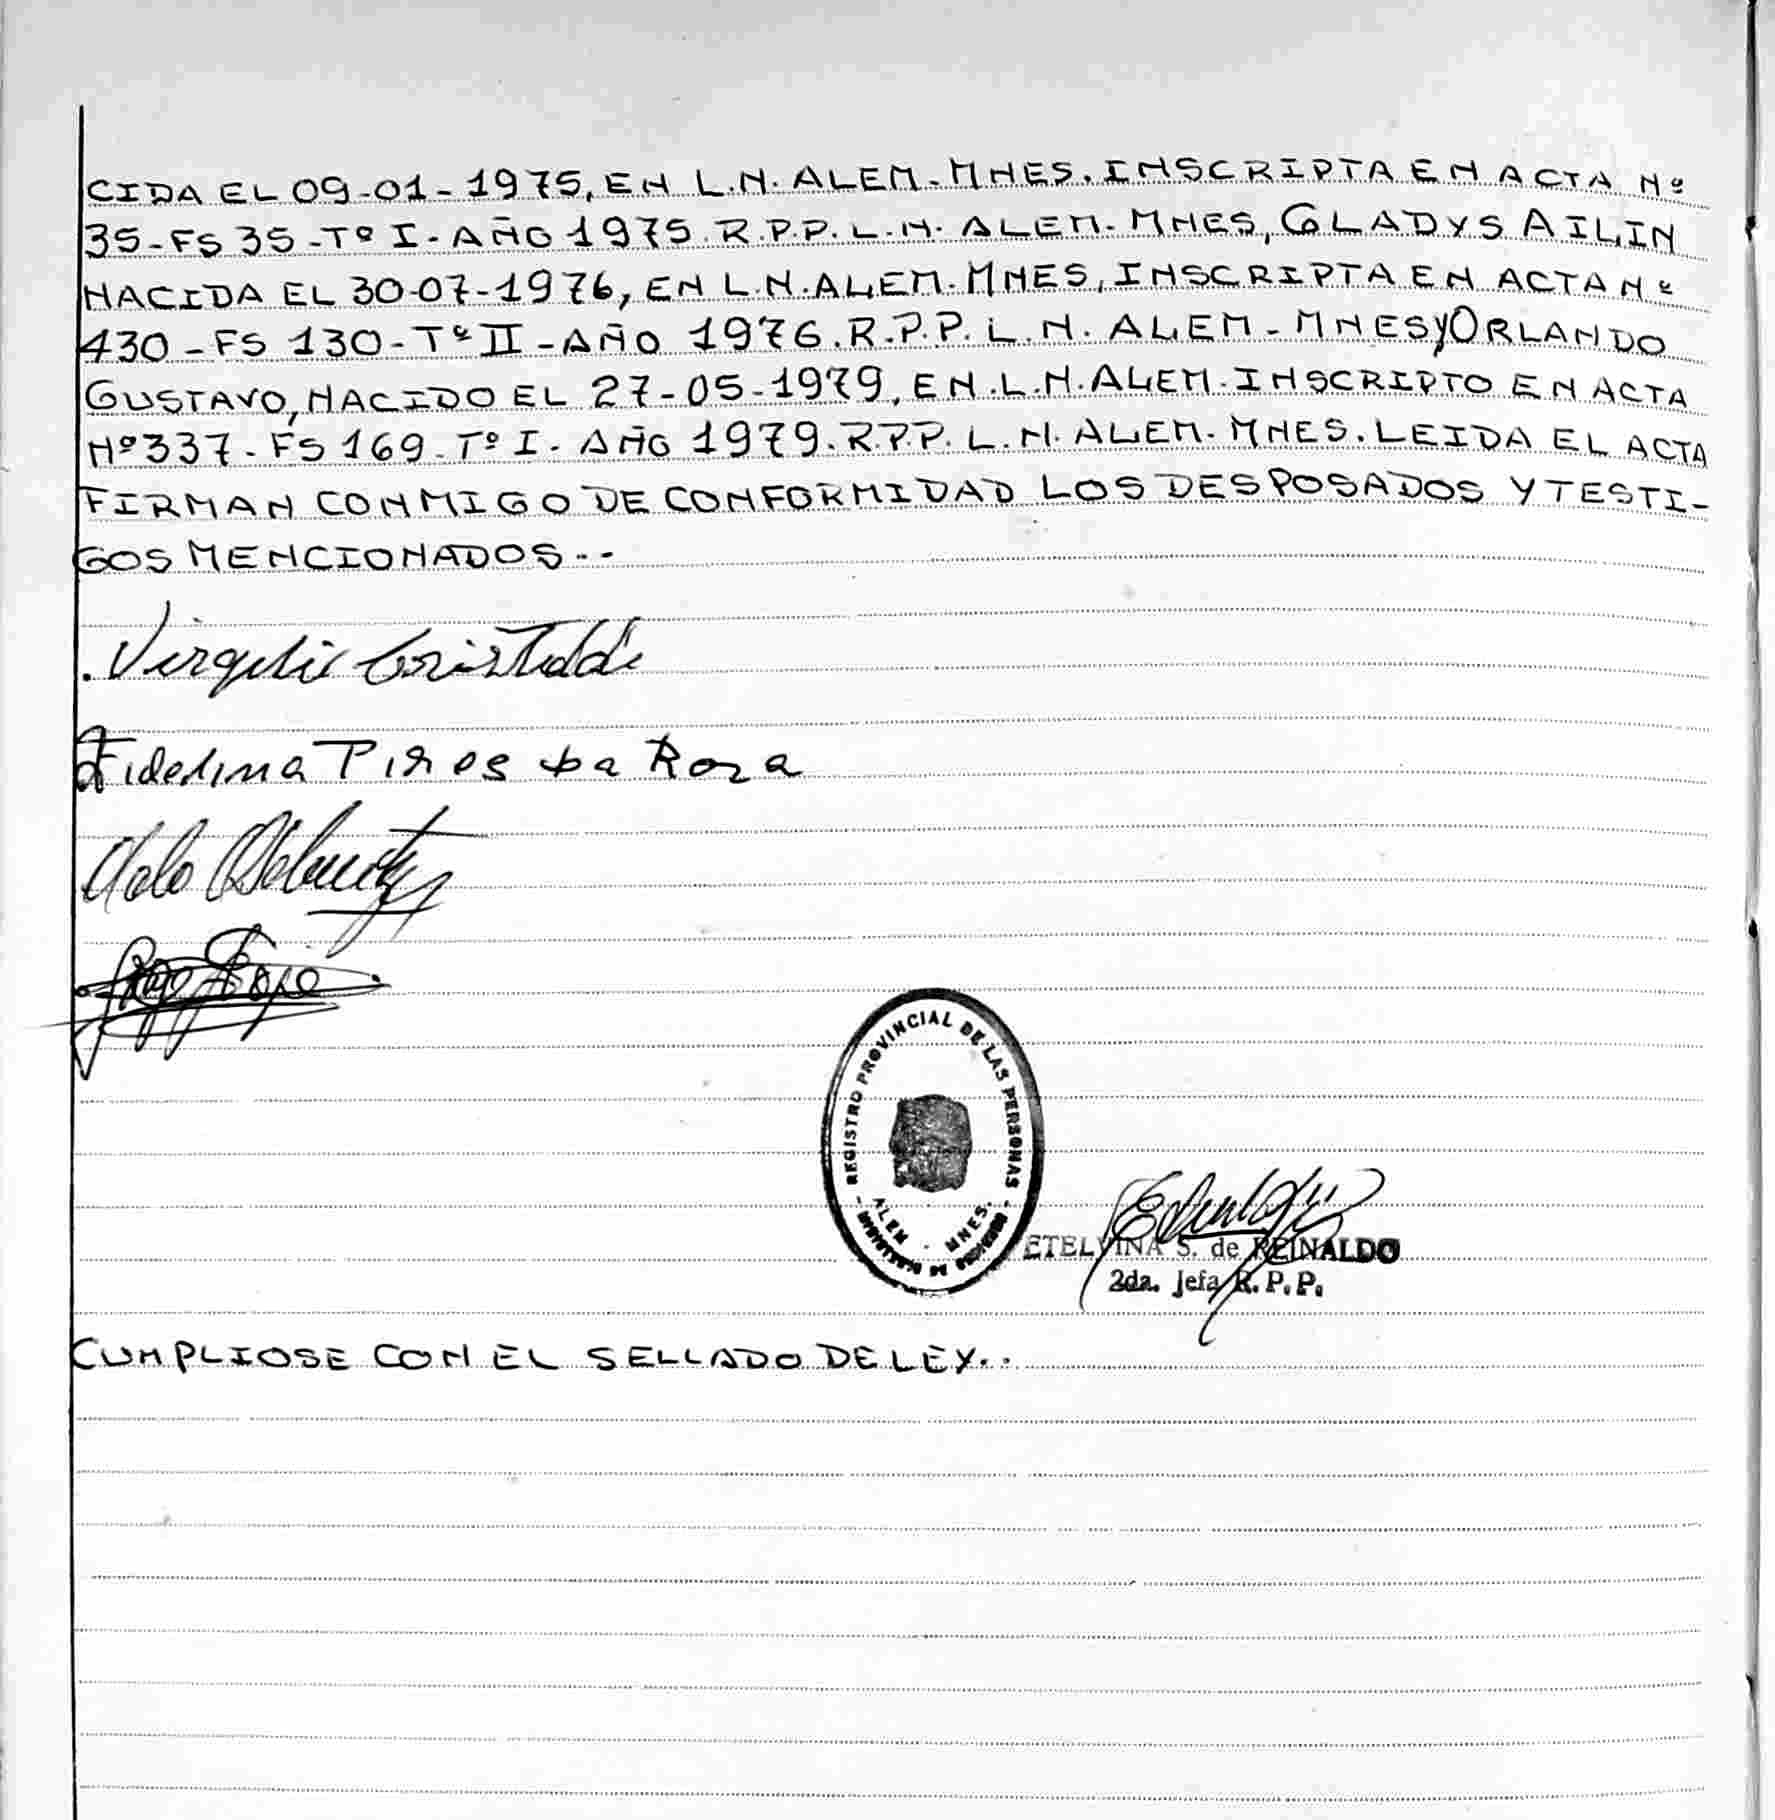 CIDA EL 09-01-1975, EN L.N. ALEM-MNES. INSCRIPTA EN ACTA Nº
35-FS 35-Tº I-AÑO 1975. R.P.P. L.N. ALEM-MNES, GLADYS AILIN
NACIDA EL 30-07-1976, EN L.N. ALEM-MNES, INSCRIPTA EN ACTA Nº
430-FS 130-Tº II-AÑO 1976. R.P.P. L.N. ALEM-MNES y ORLANDO
GUSTAVO, NACIDO EL 27-05-1979, EN L.N. ALEM. INSCRIPTO EN ACTA
Nº 337-FS 169-Tº I-AÑO 1979. R.P.P. L.N. ALEM-MNES. LEIDA EL ACTA
FIRMAN CONMIGO DE CONFORMIDAD LOS DESPOSADOS Y TESTI-
GOS MENCIONADOS--
Fidelina Pires da Roza
REGISTRO PROVINCIAL DE LAS PERSONAS
ALEM - MNES.
ETELVINA S. de REINALDO
2da. Jefa R.P.P.
CUMPLIOSE CON EL SELLADO DE LEY..